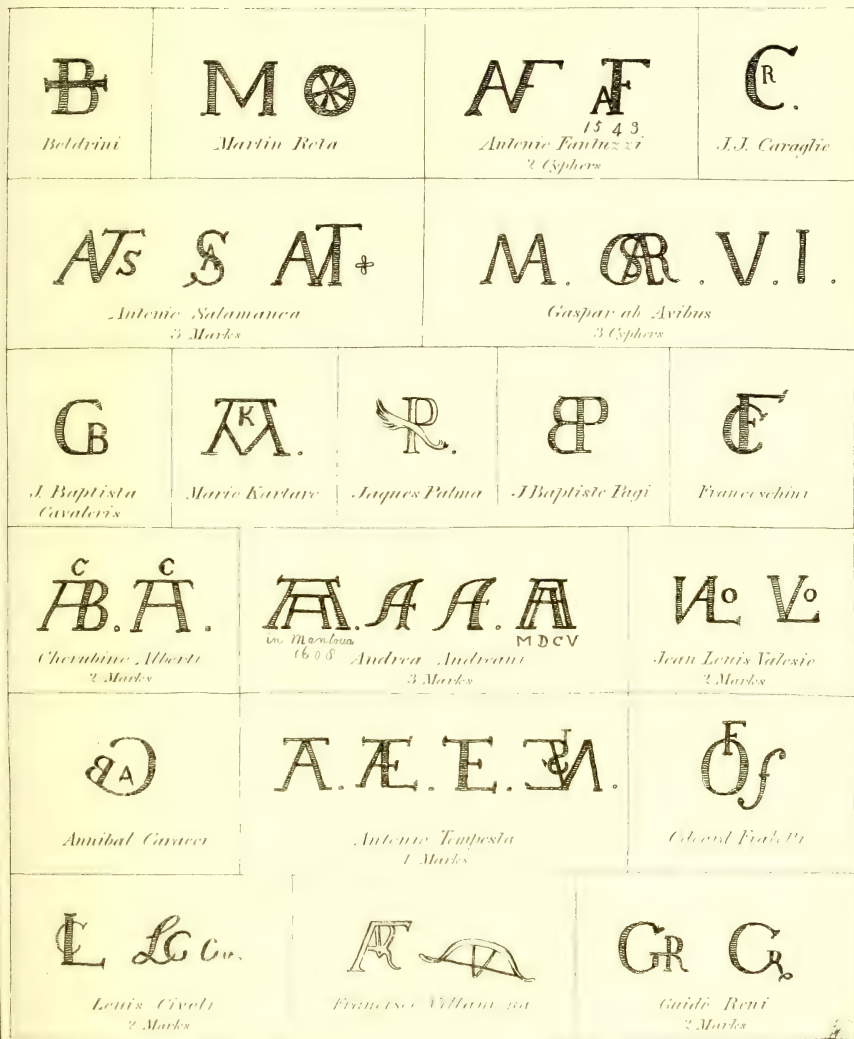 B
Boldrini
M
Martin Rota
AF AF
1543
Antonio Fantuzzi
2 Cyphers
CR.
J.J. Caraglio
ATS SA AMT
Antonio Salamanca
3 Marks
M. GSAR. V. I.
Gaspar ab Avibus
3 Cyphers
GB
J. Baptista
Cavaleris
K
Mario Kartaro
P.
Jaques Palma
BP
J Baptiste Pagi
CF
Franceschini
C C
AB. A.
Cherubino Alberti
2 Marks
A. A A. A
in Mantoua
1608
MDCV
Andrea Andreani
3 Marks
VLo VLo
Jean Louis Valesio
2 Marks
BAC
Annibal Caracci
A. Æ. E.
Antonio Tempesta
4 Marks
F
O f
Odoard Fialetti
CL LC Co.
Louis Civoli
2 Marks
Francisco Villamena
GR GR
Guido Reni
2 Marks